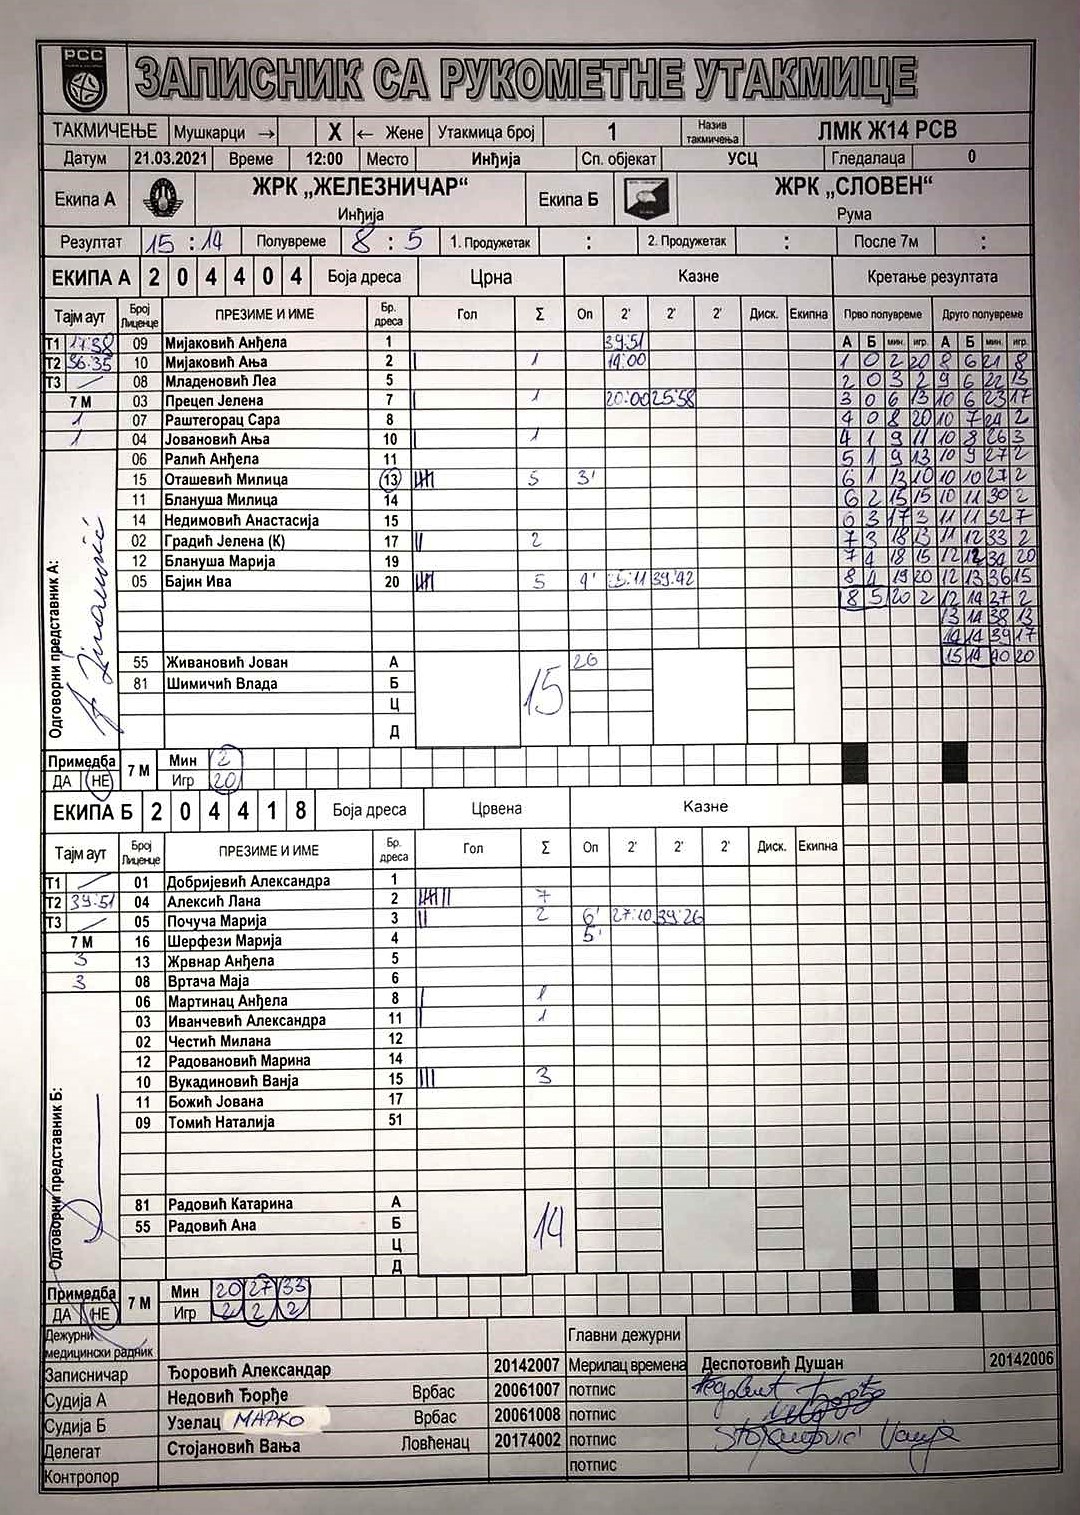 РСС
ЗАПИСНИК СА РУКОМЕТНЕ УТАКМИЦЕ
ТАКМИЧЕЊЕ Мушкарци → X ← Жене Утакмица број 1 Назив такмичења ЛМК Ж14 РСВ
Датум 21.03.2021 Време 12:00 Место Инђија Сп. објекат УСЦ Гледалаца 0
Екипа А ЖРК „ЖЕЛЕЗНИЧАР“ Инђија Екипа Б ЖРК „СЛОВЕН“ Рума
Резултат 15 : 14 Полувреме 8 : 5 1. Продужетак : 2. Продужетак : После 7м :
ЕКИПА А 2 0 4 4 0 4 Боја дреса Црна Казне Кретање резултата
Тајм аут Број Лиценце ПРЕЗИМЕ И ИМЕ Бр. дреса Гол Σ Оп 2' 2' 2' Диск. Екипна Прво полувреме Друго полувреме
Т1 17:38 09 Мијаковић Анђела 1 39:51 А Б мин. игр. А Б мин. игр.
Т2 36:35 10 Мијаковић Ања 2 | 1 19:00 1 0 2 20 8 6 21 8
Т3 / 08 Младеновић Леа 5 2 0 3 2 9 6 22 13
7 М 03 Прецеп Јелена 7 | 1 20:00 25:58 3 0 6 13 10 6 23 17
1 07 Раштегорац Сара 8 4 0 8 20 10 7 24 2
1 04 Јовановић Ања 10 | 1 4 1 9 11 10 8 26 3
06 Ралић Анђела 11 5 1 9 13 10 9 27 2
15 Оташевић Милица 13 5 3' 6 1 13 10 10 10 27 2
11 Блануша Милица 14 6 2 15 15 10 11 30 2
14 Недимовић Анастасија 15 6 3 17 3 11 11 32 7
02 Градић Јелена (К) 17 || 2 7 3 18 13 11 12 33 2
12 Блануша Марија 19 7 4 18 15 12 12 34 20
05 Бајин Ива 20 5 9' 39:42 8 4 19 20 12 13 36 15
8 5 20 2 12 14 27 2
13 14 38 13
14 14 39 17
55 Живановић Јован А 26 15 14 40 20
81 Шимичић Влада Б 15
Ц
Д
Одговорни представник А:
Примедба ДА НЕ 7 М Мин 2
Игр 20
ЕКИПА Б 2 0 4 4 1 8 Боја дреса Црвена Казне
Тајм аут Број Лиценце ПРЕЗИМЕ И ИМЕ Бр. дреса Гол Σ Оп 2' 2' 2' Диск. Екипна
Т1 / 01 Добријевић Александра 1
Т2 39:51 04 Алексић Лана 2 7
Т3 / 05 Почуча Марија 3 || 2 6' 27:10 39:26
7 М 16 Шерфези Марија 4 5'
3 13 Жрвнар Анђела 5
3 08 Вртача Маја 6
06 Мартинац Анђела 8 | 1
03 Иванчевић Александра 11 | 1
02 Честић Милана 12
12 Радовановић Марина 14
10 Вукадиновић Вања 15 ||| 3
11 Божић Јована 17
09 Томић Наталија 51
81 Радовић Катарина А 14
55 Радовић Ана Б
Ц
Д
Одговорни представник Б:
Примедба ДА НЕ 7 М Мин 20 27 33
Игр 2 2 2
Дежурни медицински радник Главни дежурни
Записничар Ђоровић Александар 20142007 Мерилац времена Деспотовић Душан 20142006
Судија А Недовић Ђорђе Врбас 20061007 потпис
Судија Б Узелац МАРКО Врбас 20061008 потпис
Делегат Стојановић Вања Ловћенац 20174002 потпис Stojanović Vanja
Контролор потпис